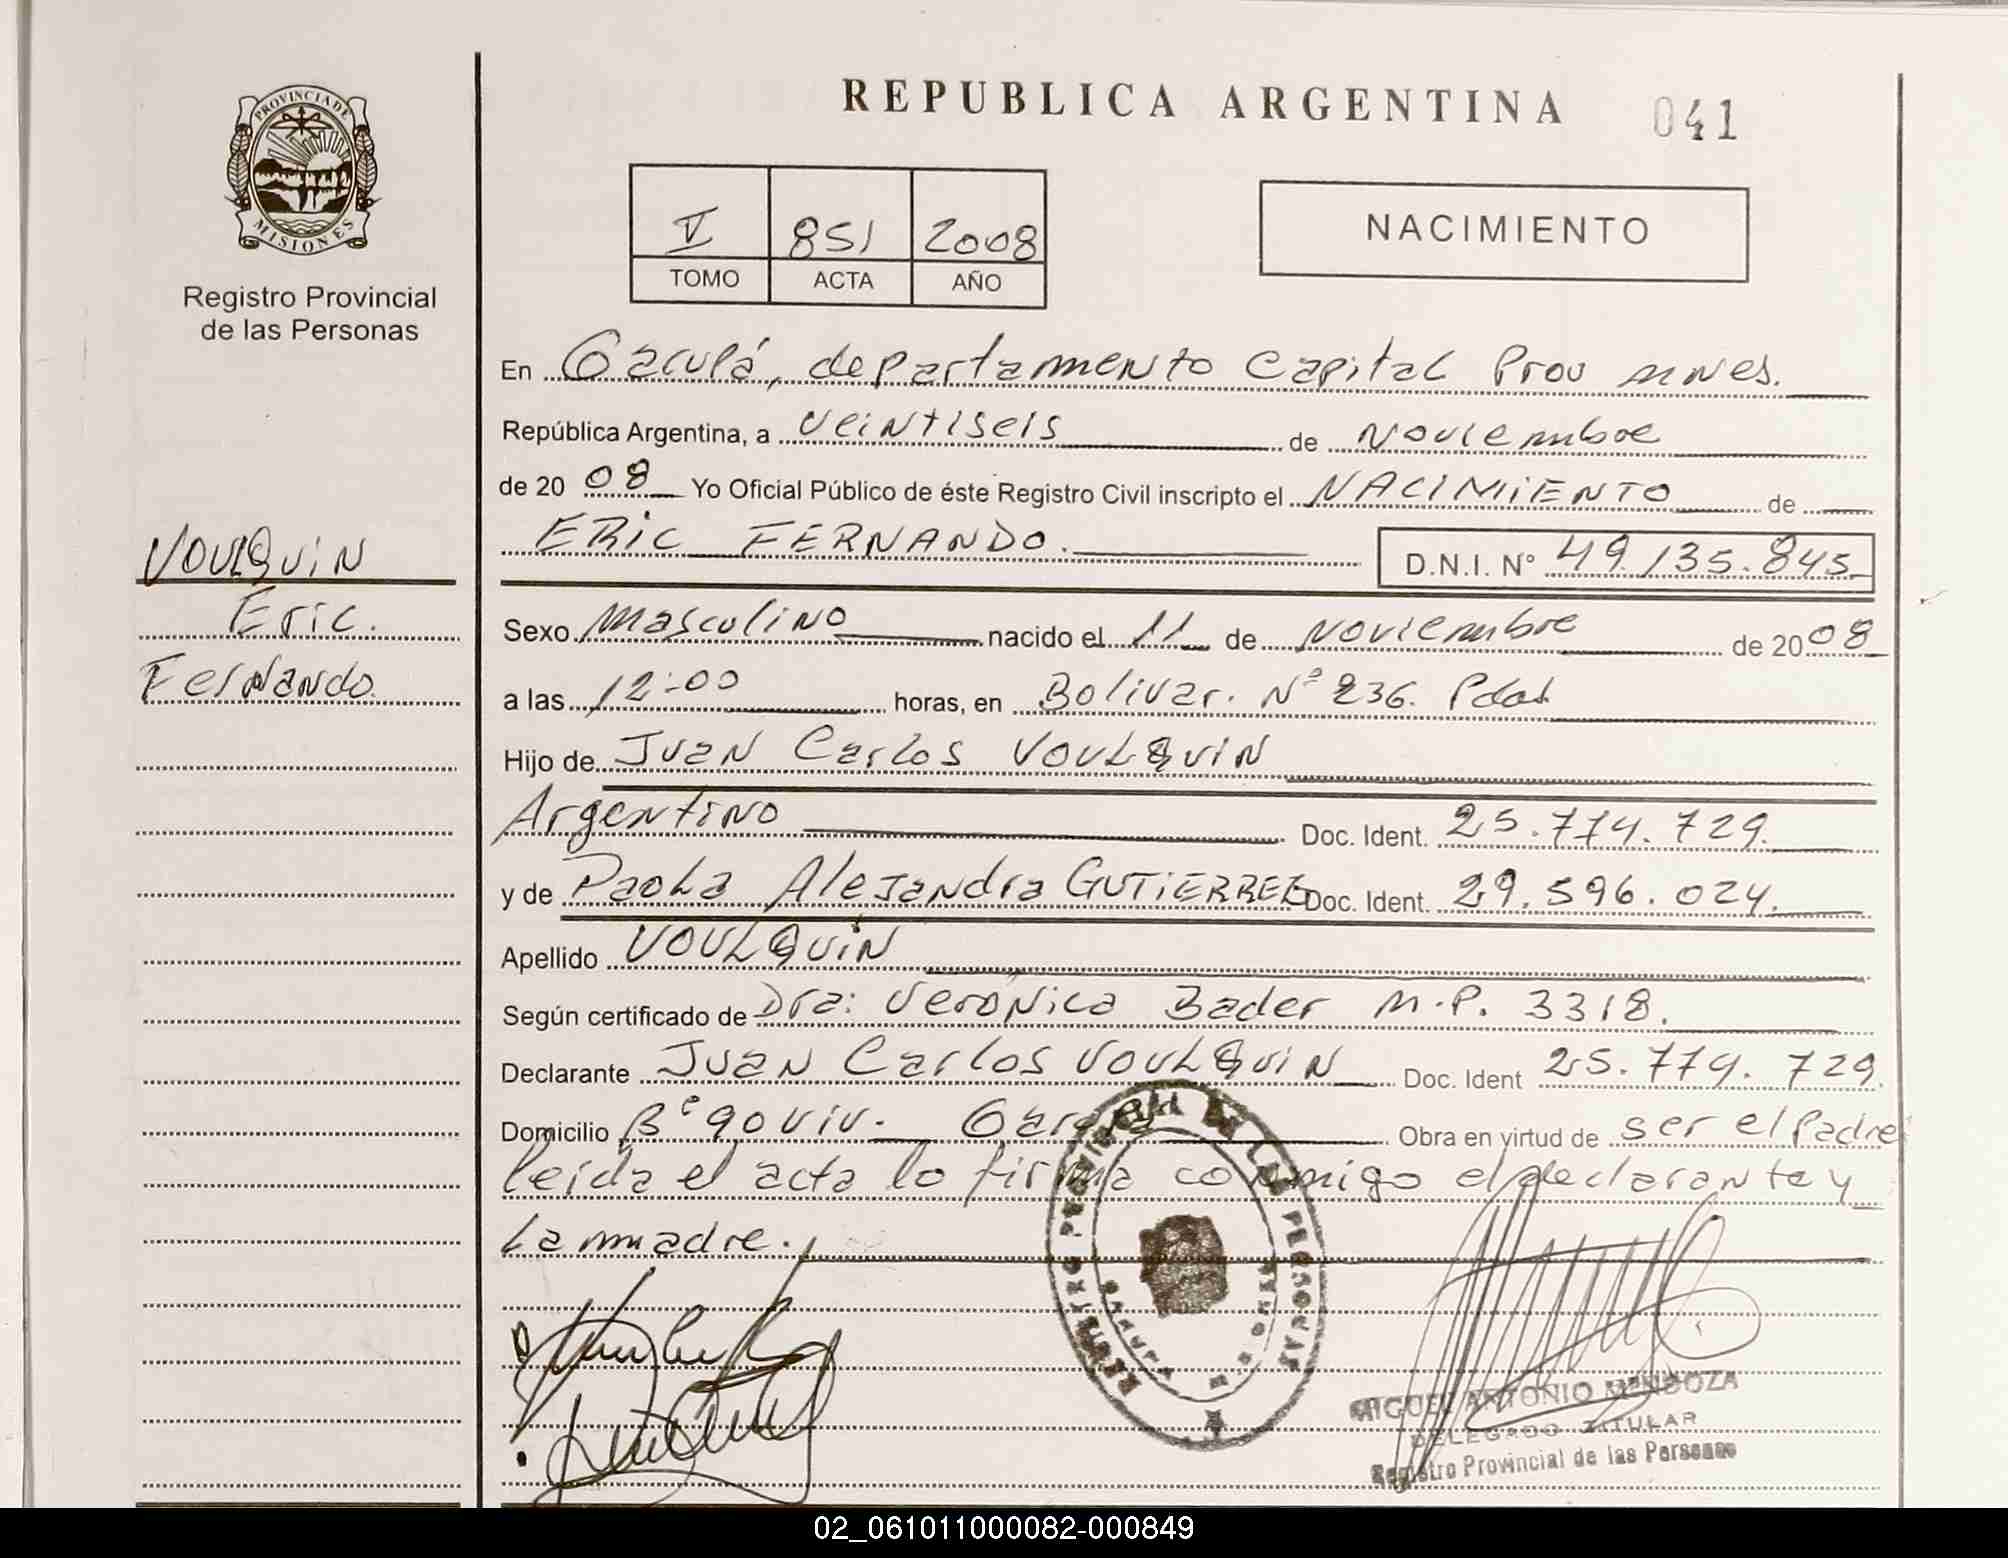 REPUBLICA ARGENTINA
041
PROVINCIA DE
MISIONES
Registro Provincial
de las Personas
V 851 2008
TOMO ACTA AÑO
NACIMIENTO
En Garupá, departamento Capital Prov mnes.
República Argentina, a veintiseis de Noviembre
de 20 08 Yo Oficial Público de éste Registro Civil inscripto el NACIMIENTO de
ERIC FERNANDO.
D.N.I. Nº 49.135.845
VOULQUIN
Eric.
Fernando.
Sexo Masculino nacido el 11 de Noviembre de 20 08
a las 12:00 horas, en Bolivar. Nº 236. Pdas
Hijo de Juan Carlos VOULQUIN
Argentino Doc. Ident. 25.774.729.
y de Paola Alejandra GUTIERREZ Doc. Ident. 29.596.024.
Apellido VOULQUIN
Según certificado de Dra: Verónica Bader M.P. 3318.
Declarante Juan Carlos VOULQUIN Doc. Ident 25.774.729.
Domicilio Bº 90 viv. Garupá Obra en virtud de ser el Padre
leida el acta lo firma conmigo el declarante y
la madre.
REGISTRO PROVINCIAL DE LAS PERSONAS
MIGUEL ANTONIO MENDOZA
DELEGADO TITULAR
Registro Provincial de las Personas
02_061011000082-000849